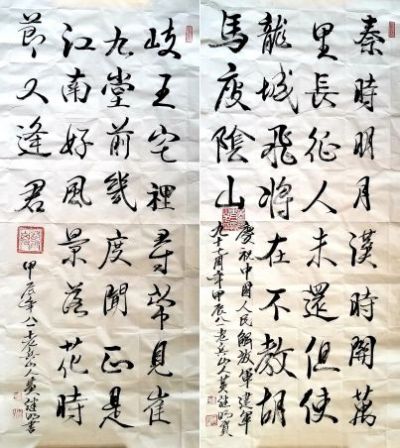 秦時明月漢時關萬
里長征人未還但使
龍城飛將在不教胡
馬度陰山
慶祝中國人民解放軍建軍
九十七周年甲辰八一老兵山人黃
岐王宅裡尋常見崔
九堂前幾度聞正是
江南好風景落花時
節又逢君
甲辰年八一老兵山人黃